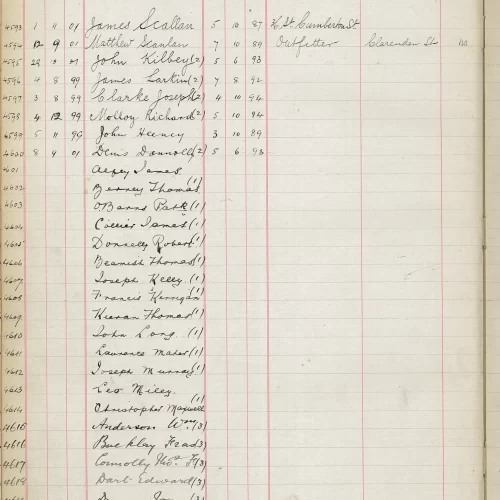 4593 1 11 01 James Scallan 5 10 87 Cumberland St
4594 12 9 01 Matthew Scanlan 7 10 89 Outfitter Clarendon St no
4595 John Kilbey (2) 5 6 93
4596 4 8 99 James Larkin (2) 7 8 92
4597 3 8 99 Clarke Joseph (2) 4 10 94
4598 4 12 99 Molloy Richard (2) 5 10 94
4599 5 11 99 John Heency 3 10 89
4600 8 9 01 Denis Donnolly (2) 5 6 93
4601 James
4602 Berney Thomas (1)
4603 Patk (1)
4604 Collier James (1)
4605 Donnelly Robert (1)
4606 Beamish Thomas (1)
4607 Joseph Kelly (1)
4608 Francis Kerrigan (1)
4609 Kieran Thomas (1)
4610 John Long (1)
4611 Laurence Maher (1)
4612 Joseph Murray (1)
4613 Leo Miley (1)
4614 Christopher Maxwell
4615 Anderson Wm (3)
4616 Buckley Fred (3)
4617 Connolly Thos F (3)
4618 Dart Edward (3)